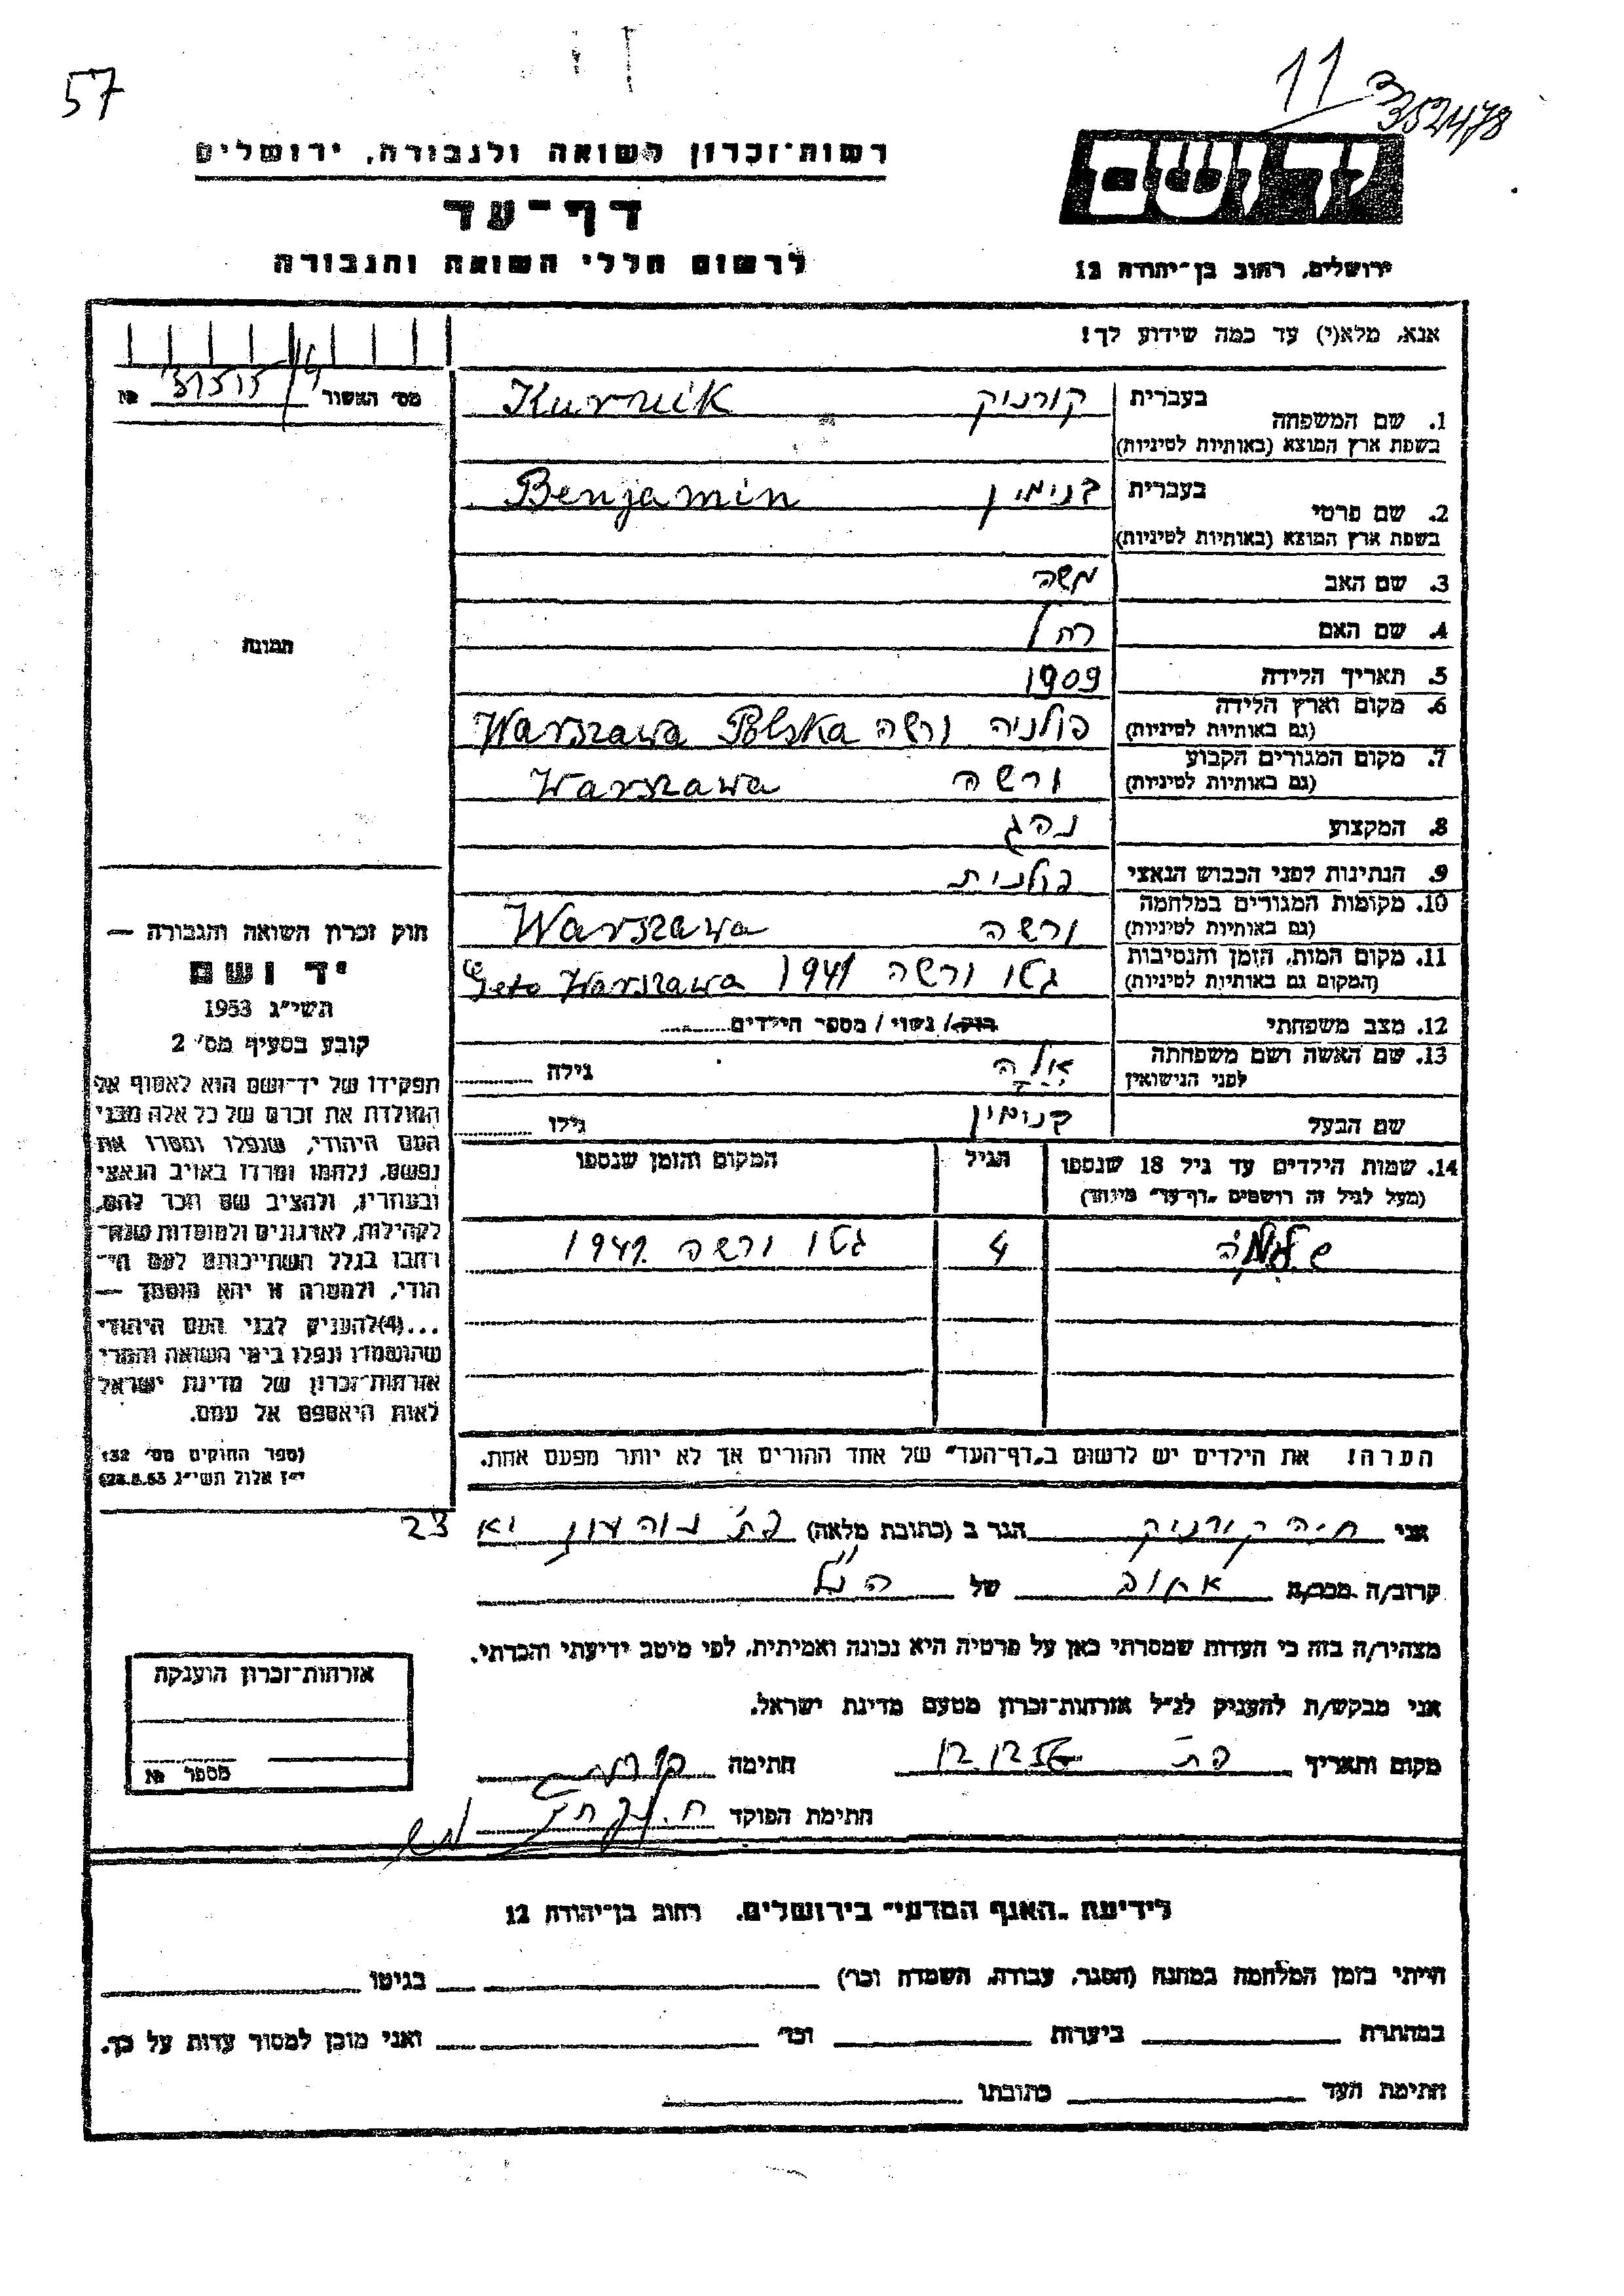 57
11
352478
רשות־זכרון השואה ולגבורה, ירושלים
דף־עד
לרשום חללי השואה והגבורה
יד ושם
ירושלים, רחוב בן־יהודה 12
אנא, מלא(י) עד כמה שידוע לך!
מס' האשור 31515/4 №
1. שם המשפחה בעברית קורניק Kurnik
בשפת ארץ המוצא (באותיות לטיניות)
2. שם פרטי בעברית בנימין Benjamin
בשפת ארץ המוצא (באותיות לטיניות)
3. שם האב משה
4. שם האם רחל
5. תאריך הלידה 1909
6. מקום וארץ הלידה פולניה ורשה Warszawa Polska
(גם באותיות לטיניות)
7. מקום המגורים הקבוע ורשה Warszawa
(גם באותיות לטיניות)
8. המקצוע נהג
9. הנתינות לפני הכבוש הנאצי פולנית
10. מקומות המגורים במלחמה ורשה Warszawa
(גם באותיות לטיניות)
11. מקום המות, הזמן והנסיבות גטו ורשה 1941 Geto Warszawa
(המקום גם באותיות לטיניות)
12. מצב משפחתי רווק/ נשוי / מספר הילדים
13. שם האשה ושם משפחתה אלה גילה
לפני הנישואין
שם הבעל גילו
14. שמות הילדים עד גיל 18 שנספו הגיל המקום והזמן שנספו
(מעל לגיל זה רושמים „דף־עד" מיוחד)
4 גטו ורשה 1941
הערה! את הילדים יש לרשום ב„דף־העד" של אחד ההורים אך לא יותר מפעם אחת.
תמונה
חוק זכרון השואה והגבורה —
יד ושם
תשי"ג 1953
קובע בסעיף מס' 2
תפקידו של יד־ושם הוא לאסוף אל
המולדת את זכרם של כל אלה מבני
העם היהודי, שנפלו ומסרו את
נפשם, נלחמו ומרדו באויב הנאצי
ובעוזריו, ולהציב שם וזכר להם,
לקהילות, לארגונים ולמוסדות שנח־
רבו בגלל השתייכותם לעם הי־
הודי, ולמטרה זו יהא מוסמך —
...(4)להעניק לבני העם היהודי
שהושמדו ונפלו בימי השואה והמרי
אזרחות־זכרון של מדינת ישראל
לאות היאספם אל עמם.
(ספר החוקים מס' 132
י"ז אלול תשי"ג 28.8.53)
אני חיה קורניק הגר ב (כתובת מלאה) פ"ת 23
קרוב/ה מכר/ה של הנ"ל
מצהיר/ה בזה כי העדות שמסרתי כאן על פרטיה היא נכונה ואמיתית, לפי מיטב ידיעתי והכרתי.
אני מבקש/ת להעניק לנ"ל אזרחות־זכרון מטעם מדינת ישראל.
מקום ותאריך פ"ת חתימה
חתימת הפוקד
אזרחות־זכרון הוענקה
מספר №
לידיעת „האגף המדעי" בירושלים, רחוב בן־יהודה 12
הייתי בזמן המלחמה במחנה (הסגר, עבודה, השמדה וכו') בגיטו
במחתרת ביערות וכו' ואני מוכן למסור עדות על כך.
חתימת העד כתובתו